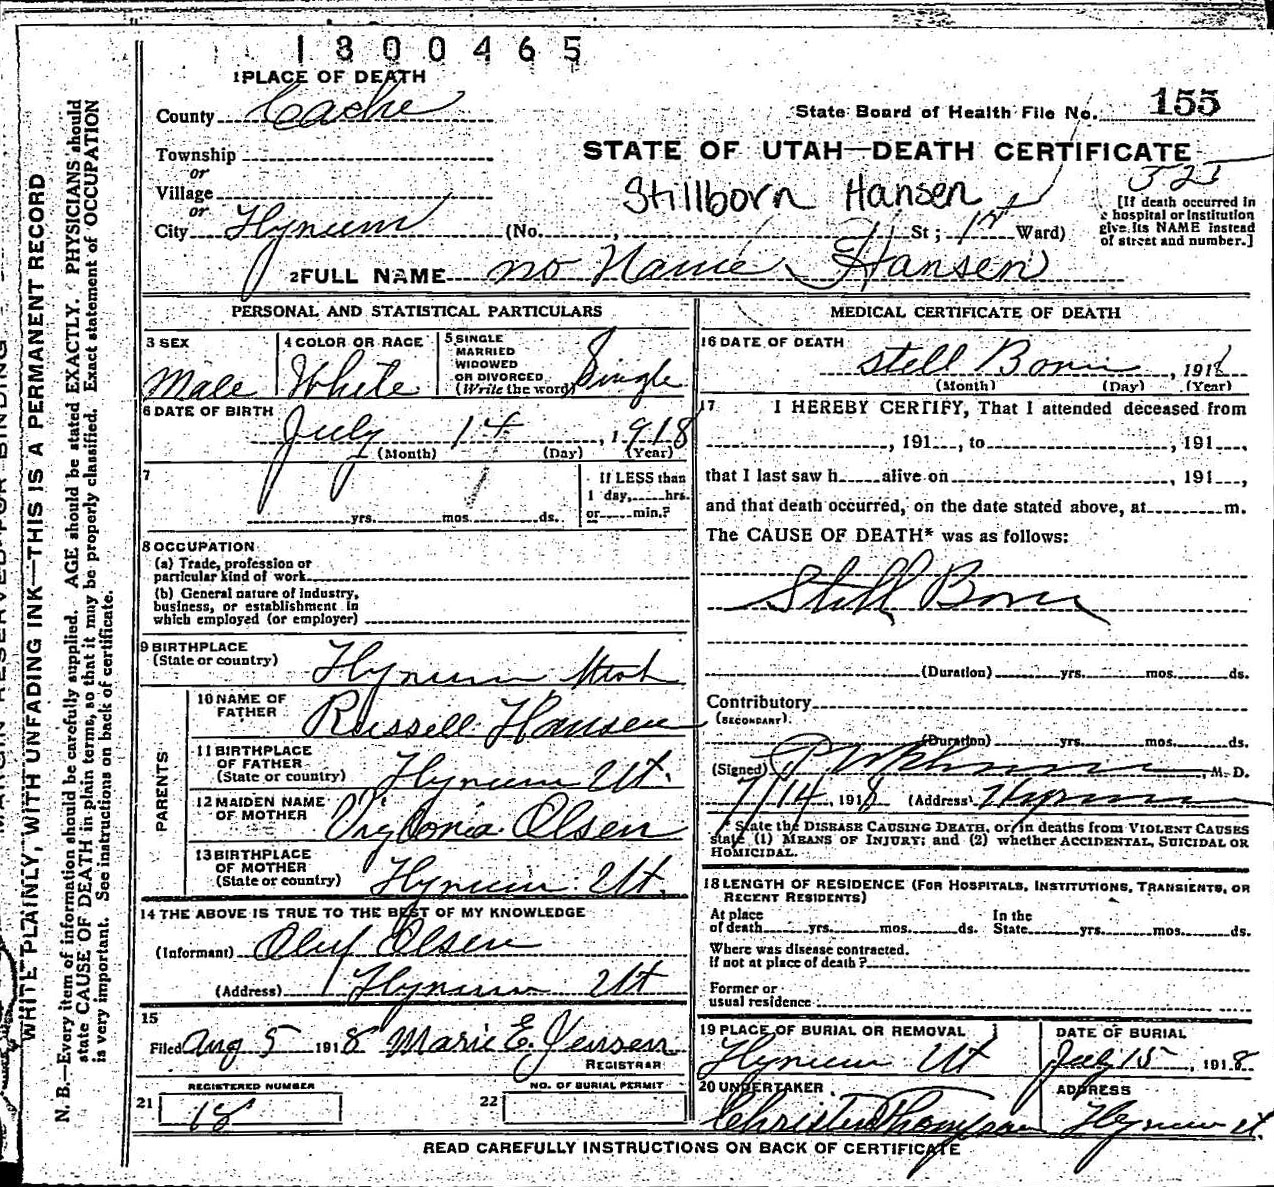 1800465
1 PLACE OF DEATH
County Cache
State Board of Health File No. 155
Township
or
Village
or
City Hyrum
STATE OF UTAH—DEATH CERTIFICATE
Stillborn Hansen
(No. , St; 1st Ward)
[If death occurred in
a hospital or institution
give its NAME instead
of street and number.]
2 FULL NAME no Name Hansen
PERSONAL AND STATISTICAL PARTICULARS
3 SEX
Male
4 COLOR OR RACE
White
5 SINGLE
MARRIED
WIDOWED
OR DIVORCED
(Write the word) Single
6 DATE OF BIRTH
July 14, 1918
(Month) (Day) (Year)
7
yrs. mos. ds.
If LESS than
1 day, hrs.
or min.?
8 OCCUPATION
(a) Trade, profession or
particular kind of work
(b) General nature of industry,
business, or establishment in
which employed (or employer)
9 BIRTHPLACE
(State or country) Hyrum Utah
PARENTS
10 NAME OF
FATHER Russell Hansen
11 BIRTHPLACE
OF FATHER
(State or country) Hyrum Ut.
12 MAIDEN NAME
OF MOTHER Olsen
13 BIRTHPLACE
OF MOTHER
(State or country) Hyrum Ut.
14 THE ABOVE IS TRUE TO THE BEST OF MY KNOWLEDGE
(Informant) Oluf Olsen
(Address) Hyrum Ut
15
Filed Aug 5 1918 Marie E. Jensen
REGISTRAR
REGISTERED NUMBER
21 18
NO. OF BURIAL PERMIT
22
MEDICAL CERTIFICATE OF DEATH
16 DATE OF DEATH
Still Born, 1918
(Month) (Day) (Year)
17 I HEREBY CERTIFY, That I attended deceased from
, 191 , to , 191 ,
that I last saw h alive on , 191 ,
and that death occurred, on the date stated above, at m.
The CAUSE OF DEATH* was as follows:
Still Born
(Duration) yrs. mos. ds.
Contributory
(SECONDARY)
(Duration) yrs. mos. ds.
(Signed) , M. D.
7/14, 1918 (Address) Hyrum
* State the DISEASE CAUSING DEATH, or, in deaths from VIOLENT CAUSES
state (1) MEANS OF INJURY; and (2) whether ACCIDENTAL, SUICIDAL OR
HOMICIDAL.
18 LENGTH OF RESIDENCE (FOR HOSPITALS, INSTITUTIONS, TRANSIENTS, OR
RECENT RESIDENTS)
At place
of death yrs. mos. ds.
In the
State yrs. mos. ds.
Where was disease contracted.
If not at place of death?
Former or
usual residence
19 PLACE OF BURIAL OR REMOVAL
Hyrum Ut
DATE OF BURIAL
July 15, 1918
20 UNDERTAKER
Thompson
ADDRESS
Hyrum Ut.
READ CAREFULLY INSTRUCTIONS ON BACK OF CERTIFICATE
MARGIN RESERVED FOR BINDING
WHITE PLAINLY, WITH UNFADING INK—THIS IS A PERMANENT RECORD
N. B.—Every item of information should be carefully supplied. AGE should be stated EXACTLY. PHYSICIANS should
state CAUSE OF DEATH in plain terms, so that it may be properly classified. Exact statement of OCCUPATION
is very important. See instructions on back of certificate.